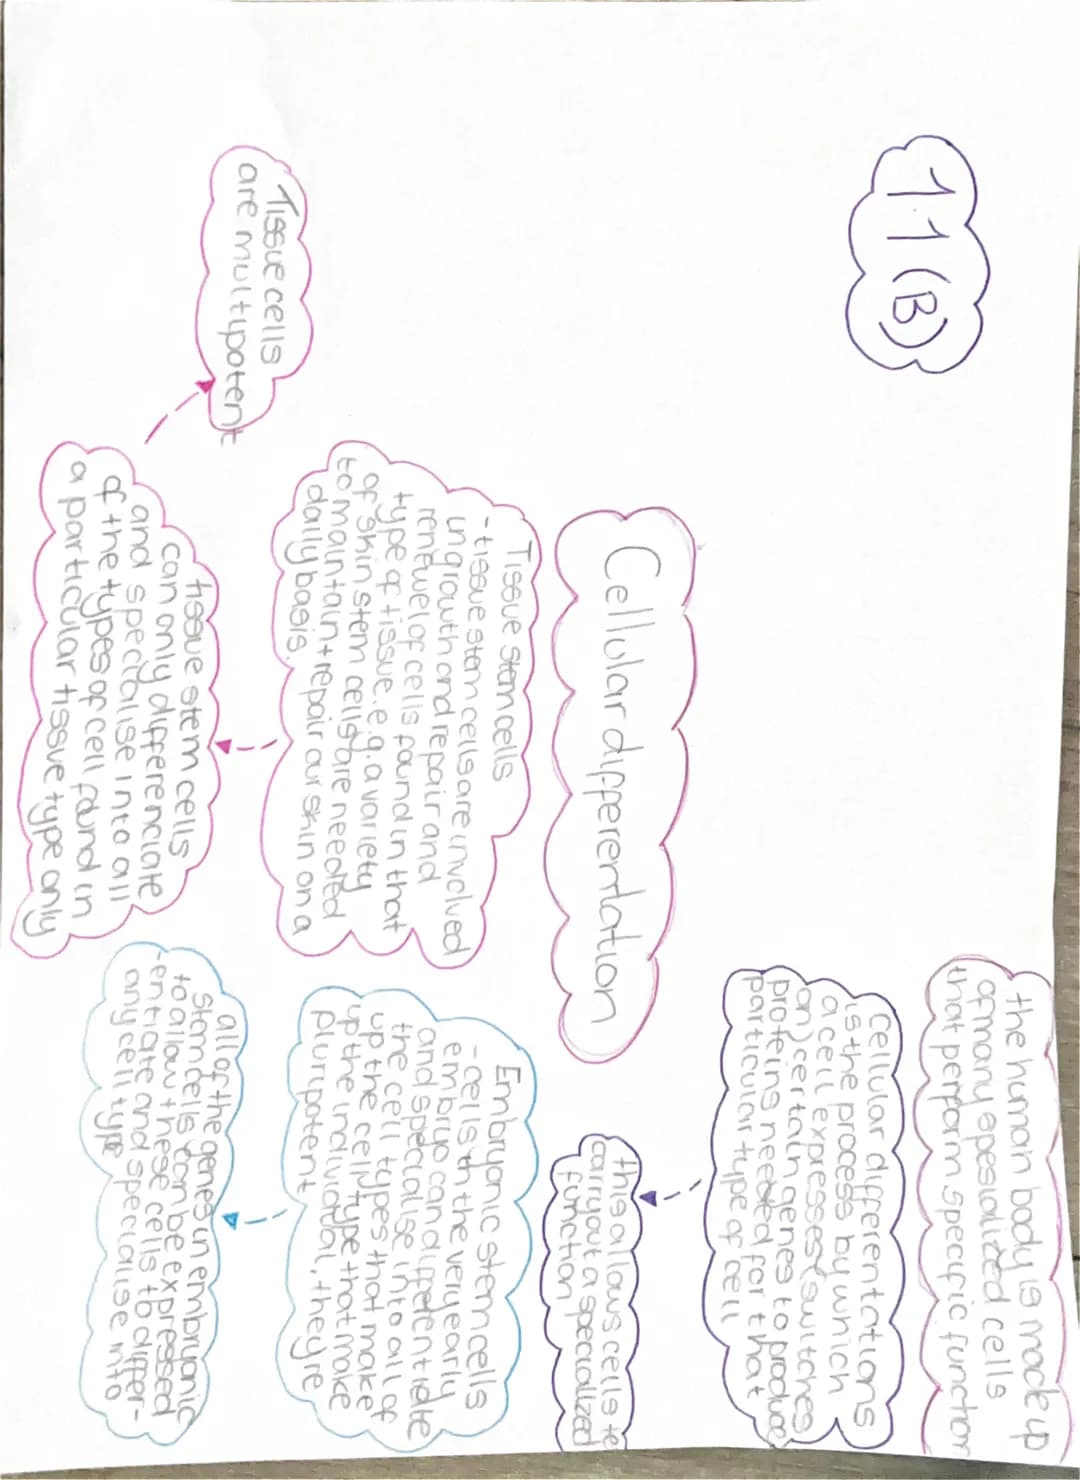 1.1 (B)
the human body is made up
of many spesialized cells
that perform specific function
cellular differentations
is the process by which
a cell expresses (switches
on) certain genes to produce
proteins needed for that
particular type of cell
this allows cells to
carry out a specialized
function
Cellular differentation
Tissue stem cells
-tissue stem cells are involved
in growth and repair and
renewel of cells found in that
type of tissue. e.g. a variety
of skin stem cells are needed
to maintain + repair our skin on a
daily basis.
tissue stem cells
can only differenciate
and specialise into all
of the types of cell found in
a particular tissue type only
Tissue cells
are multipotent
Embryonic stem cells
-cells in the very early
embryo can differentiate
and specialise into all of
the cell types that make
up the cell type that make
up the individual, they're
pluripotent
all of the genes in embryonic
stem cells can be expressed
to allow these cells to differ-
entiate and specialise into
any cell type